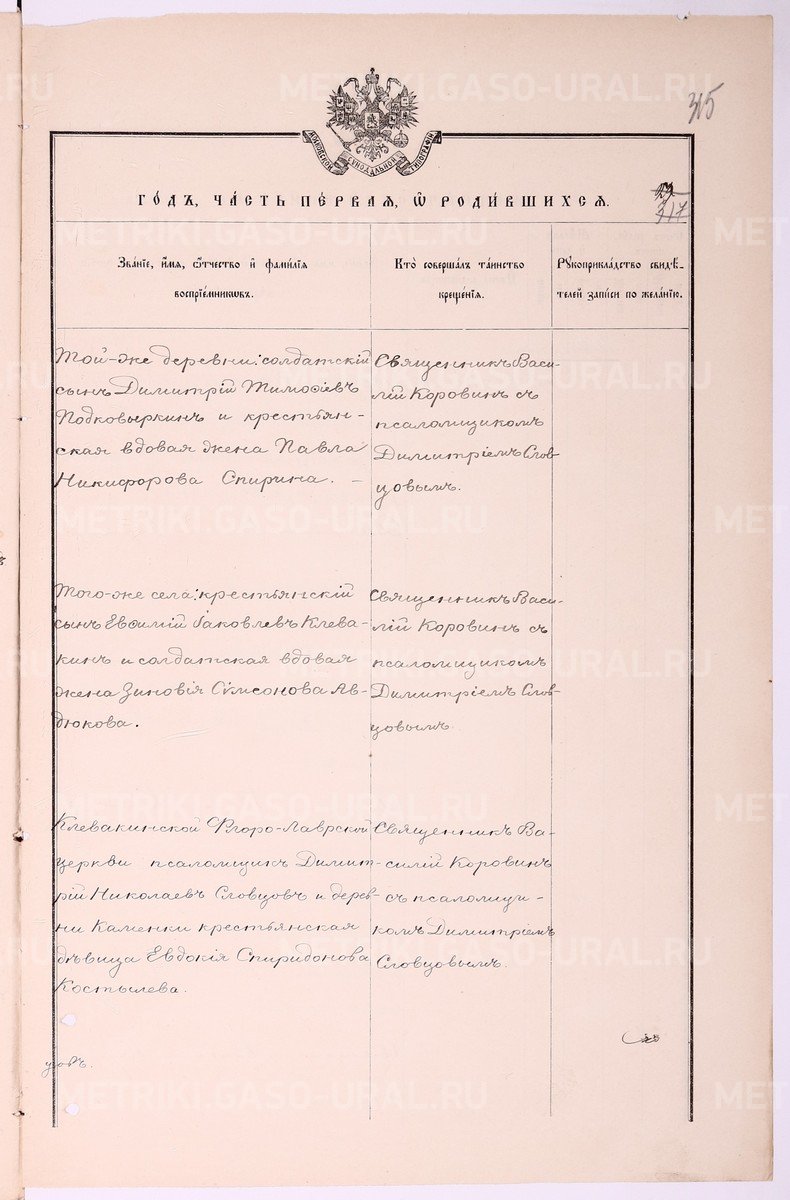 METRIKI.GASO-URAL.RU
315
МОСКОВСКОЙ СѴНОДАЛЬНОЙ ТИПОГРАФІИ
ГО́ДЪ, ЧА́СТЬ ПЕ́РВАЯ, Ѿ РОДИ́ВШИХСЯ.
317
Зва́ніе, и́мя, ѻ́тчество и҆ фами́лія
воспріе́мникѡвъ.
Кто̀ соверша́лъ та́инство
креще́нія.
Рꙋкоприкла́дство свидѣ́-
телей за́писи по жела́нію.
Той-же деревни: солдатскій
сынъ Димитрій Тимоѳѣевъ
Подковыркинъ и крестьян-
ская вдовая жена Павла
Никифорова Спирина. —
Священникъ Васи-
лій Коровинъ съ
псаломщикомъ
Димитріемъ Слов-
цовымъ.
Того-же села: крестьянскій
сынъ Евѳимій Іаковлевъ Клева-
кинъ и солдатская вдовая
жена Зиновія Сѵмеонова Ав-
дюкова.
Священникъ Васи-
лій Коровинъ съ
псаломщикомъ
Димитріемъ Слов-
цовымъ
Клевакинской Флоро-Лаврской
церкви псаломщикъ Димит-
рій Николаевъ Словцовъ и дерев-
ни Каменки крестьянская
дѣвица Евдокія Спиридонова
Костылева.
Священникъ Ва-
силій Коровинъ
съ псаломщи-
комъ Димитріемъ
Словцовымъ.